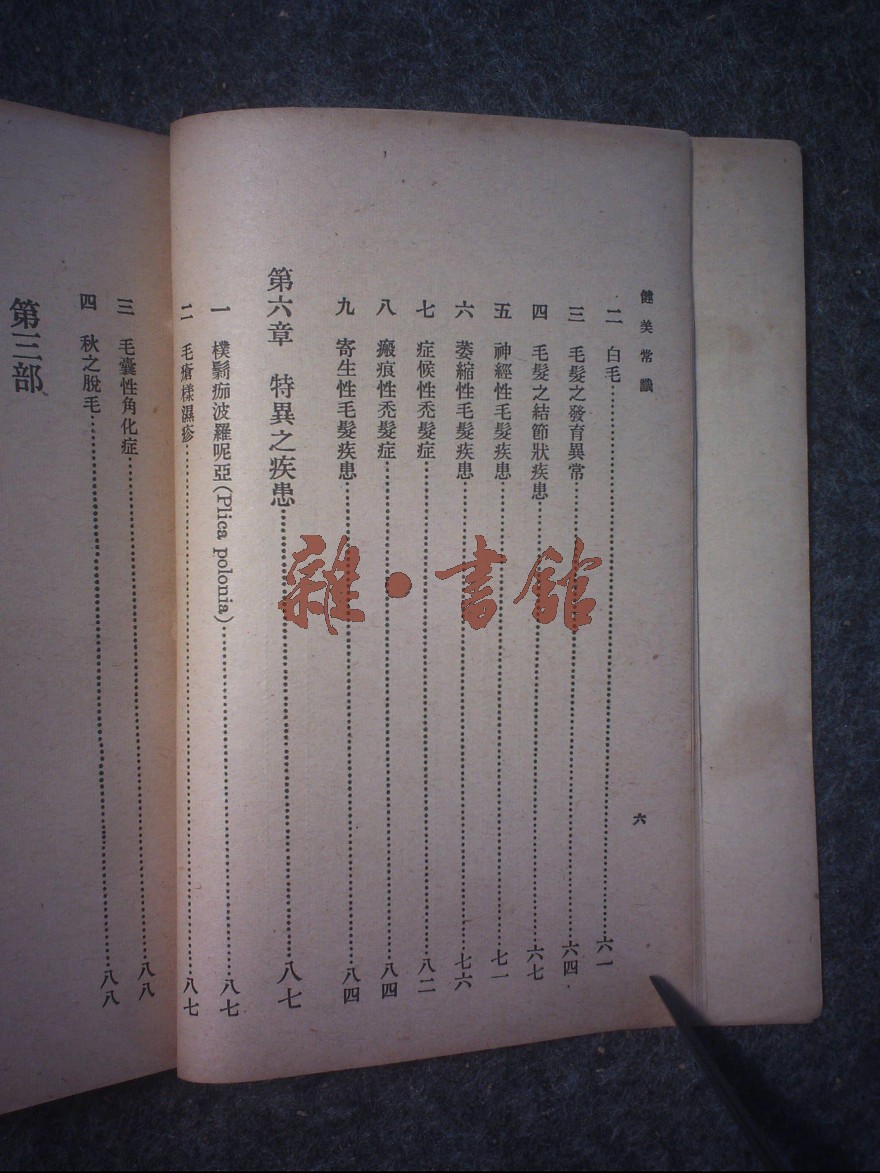 健美常識
六
二　白毛……六一
三　毛髮之發育異常……六四
四　毛髮之結節狀疾患……六七
五　神經性毛髮疾患……七一
六　萎縮性毛髮疾患……七六
七　症候性禿髮症……八二
八　瘢痕性禿髮症……八四
九　寄生性毛髮疾患……八四
第六章　特異之疾患……八七
一　樸鬍痂波羅呢亞(Plica polonia)……八七
二　毛瘡樣濕疹……八七
三　毛囊性角化症……八八
四　秋之脫毛……八八
第三部
雜·書館